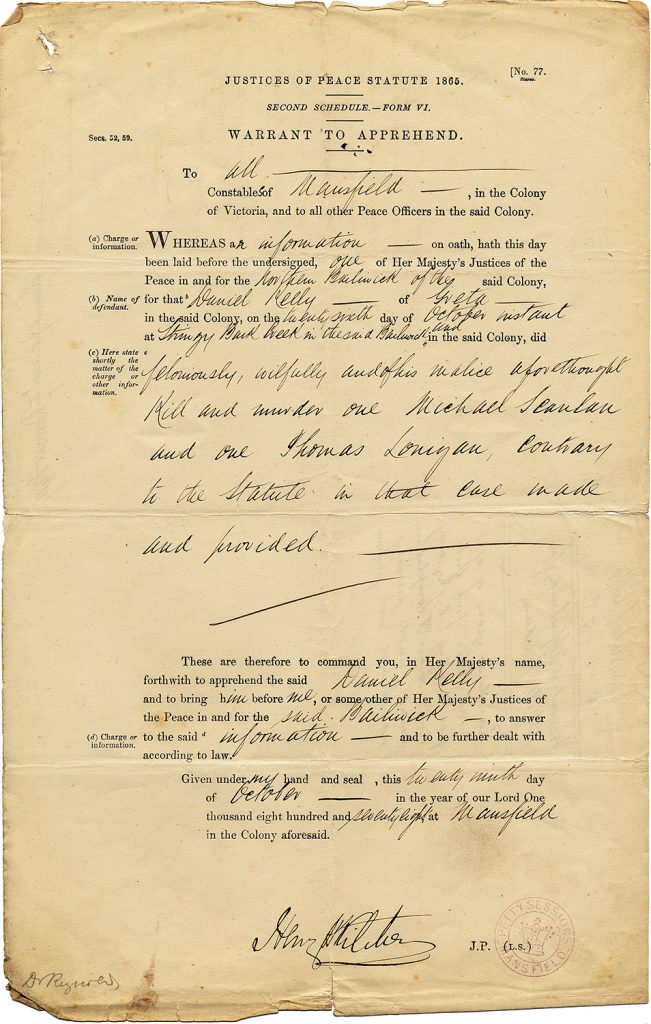 [No. 77.
Stereo.
JUSTICES OF PEACE STATUTE 1865.
SECOND SCHEDULE.—FORM VI.
Secs. 52, 59.
WARRANT TO APPREHEND.
To all
Constables of Mansfield —, in the Colony
of Victoria, and to all other Peace Officers in the said Colony.
(a) Charge or information.
WHEREAS an information — on oath, hath this day
been laid before the undersigned, one of Her Majesty's Justices of the
Peace in and for the Northern Bailiwick of the said Colony,
(b) Name of defendant.
for that b Daniel Kelly — of Greta —
in the said Colony, on the twenty sixth day of October instant
at Stringy Bark Creek in the said Bailiwick and in the said Colony, did
(c) Here state shortly the matter of the charge or other information.
c
feloniously, wilfully and of his malice aforethought
Kill and murder one Michael Scanlan
and one Thomas Lonigan, contrary
to the Statute in that case made
and provided.
These are therefore to command you, in Her Majesty's name,
forthwith to apprehend the said Daniel Kelly —
and to bring him before me, or some other of Her Majesty's Justices of
the Peace in and for the said Bailiwick —, to answer
(d) Charge or information.
to the said d information — and to be further dealt with
according to law.
Given under my hand and seal , this twenty ninth day
of October — in the year of our Lord One
thousand eight hundred and seventy eight at Mansfield
in the Colony aforesaid.
J.P. (L.S.)
PETTY SESSIONS
MANSFIELD
Dr Reynolds